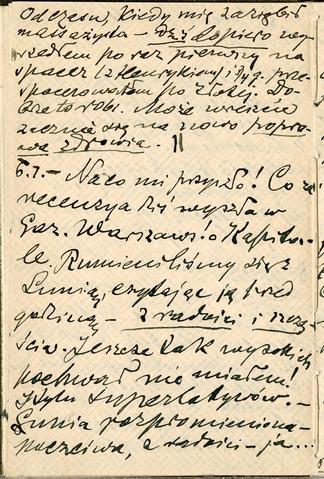 Od czasu, kiedy mię zaziębił
massażysta – Dziś dopiero wy-
szedłem po raz pierwszy na
spacer (z Henrykiem) i 3/4 g. prze-
spacerowałem po Złotej. Do-
brze to robi. Może wreście
zacznie się na nowo popra-
wa zdrowia. –
6.I. – Na co mi przyszło! Co za
recenzya dziś wyszła w
Gaz. Warszaws. o Kapito-
le. Rumieniliśmy się z
Lunią, czytając ją przed
godziną – z radości i szczę-
ścia. Jeszcze tak wysokich
pochwał nie miałem!
I tylu superlatywów. –
Lunia rozpromieniona –
poczciwa, z radości – ja...